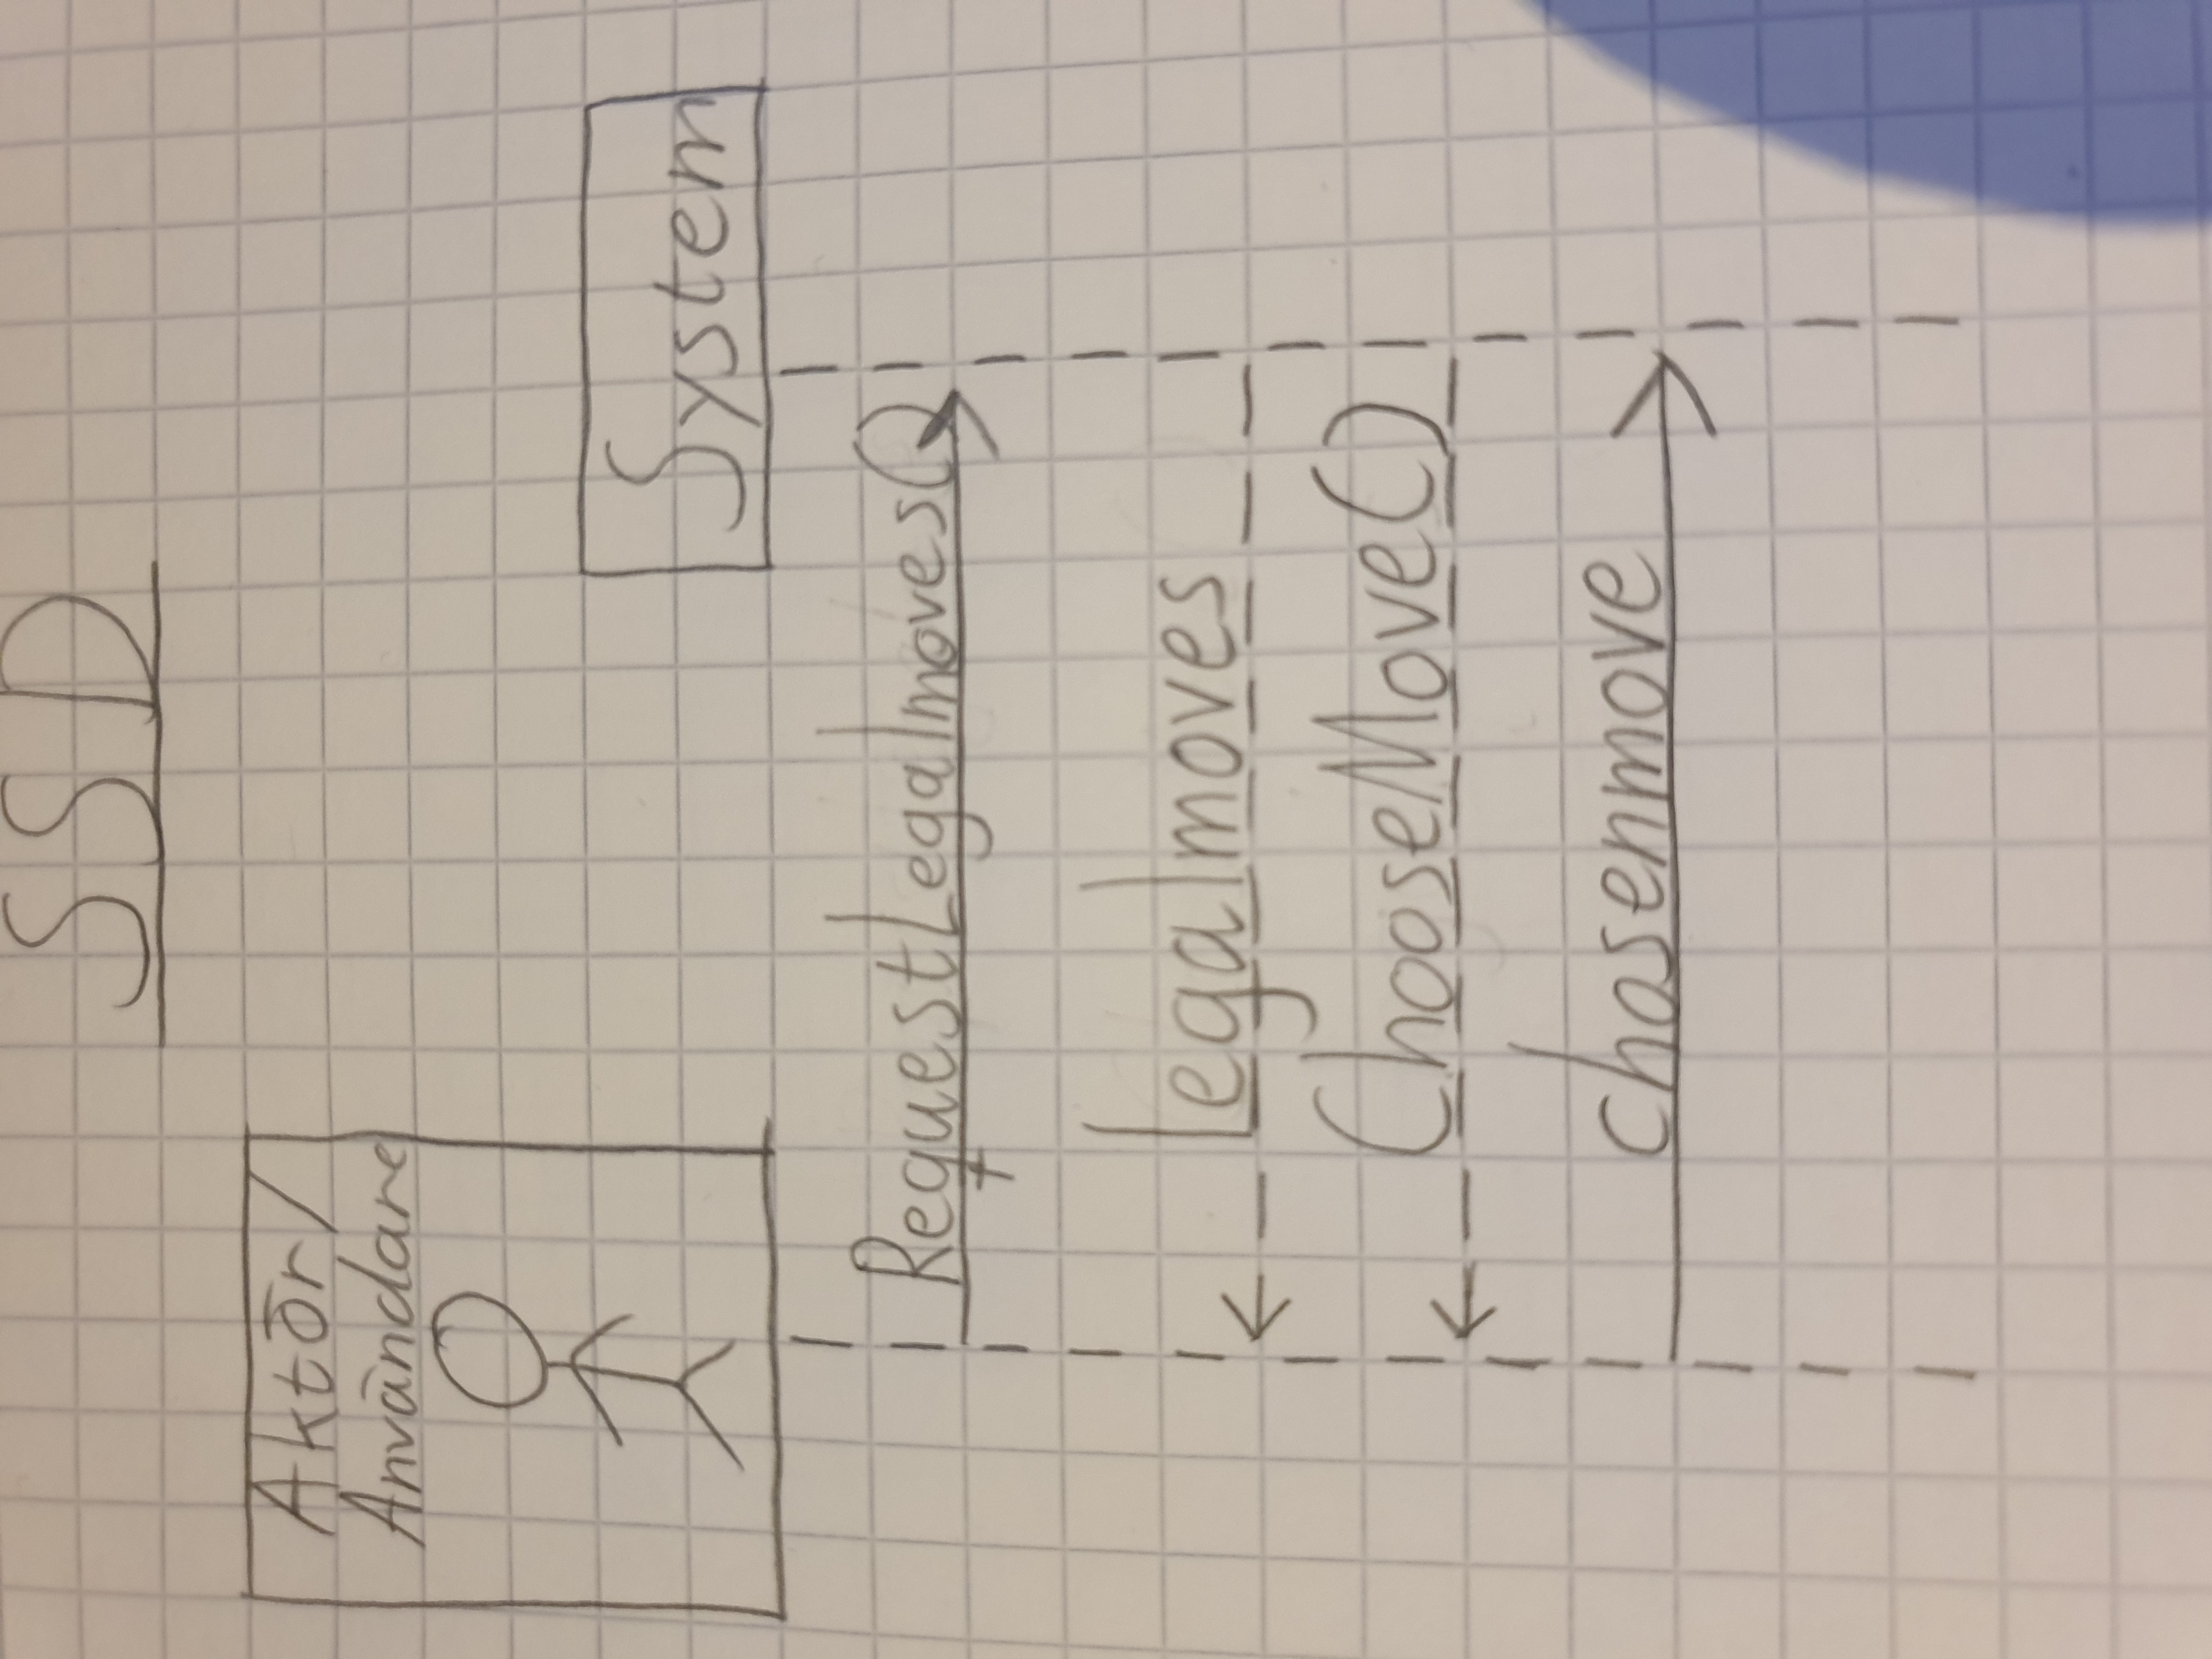 SSD
Aktör/
Användare
System
RequestLegalmoves()
legalmoves
ChooseMove()
chosenmove